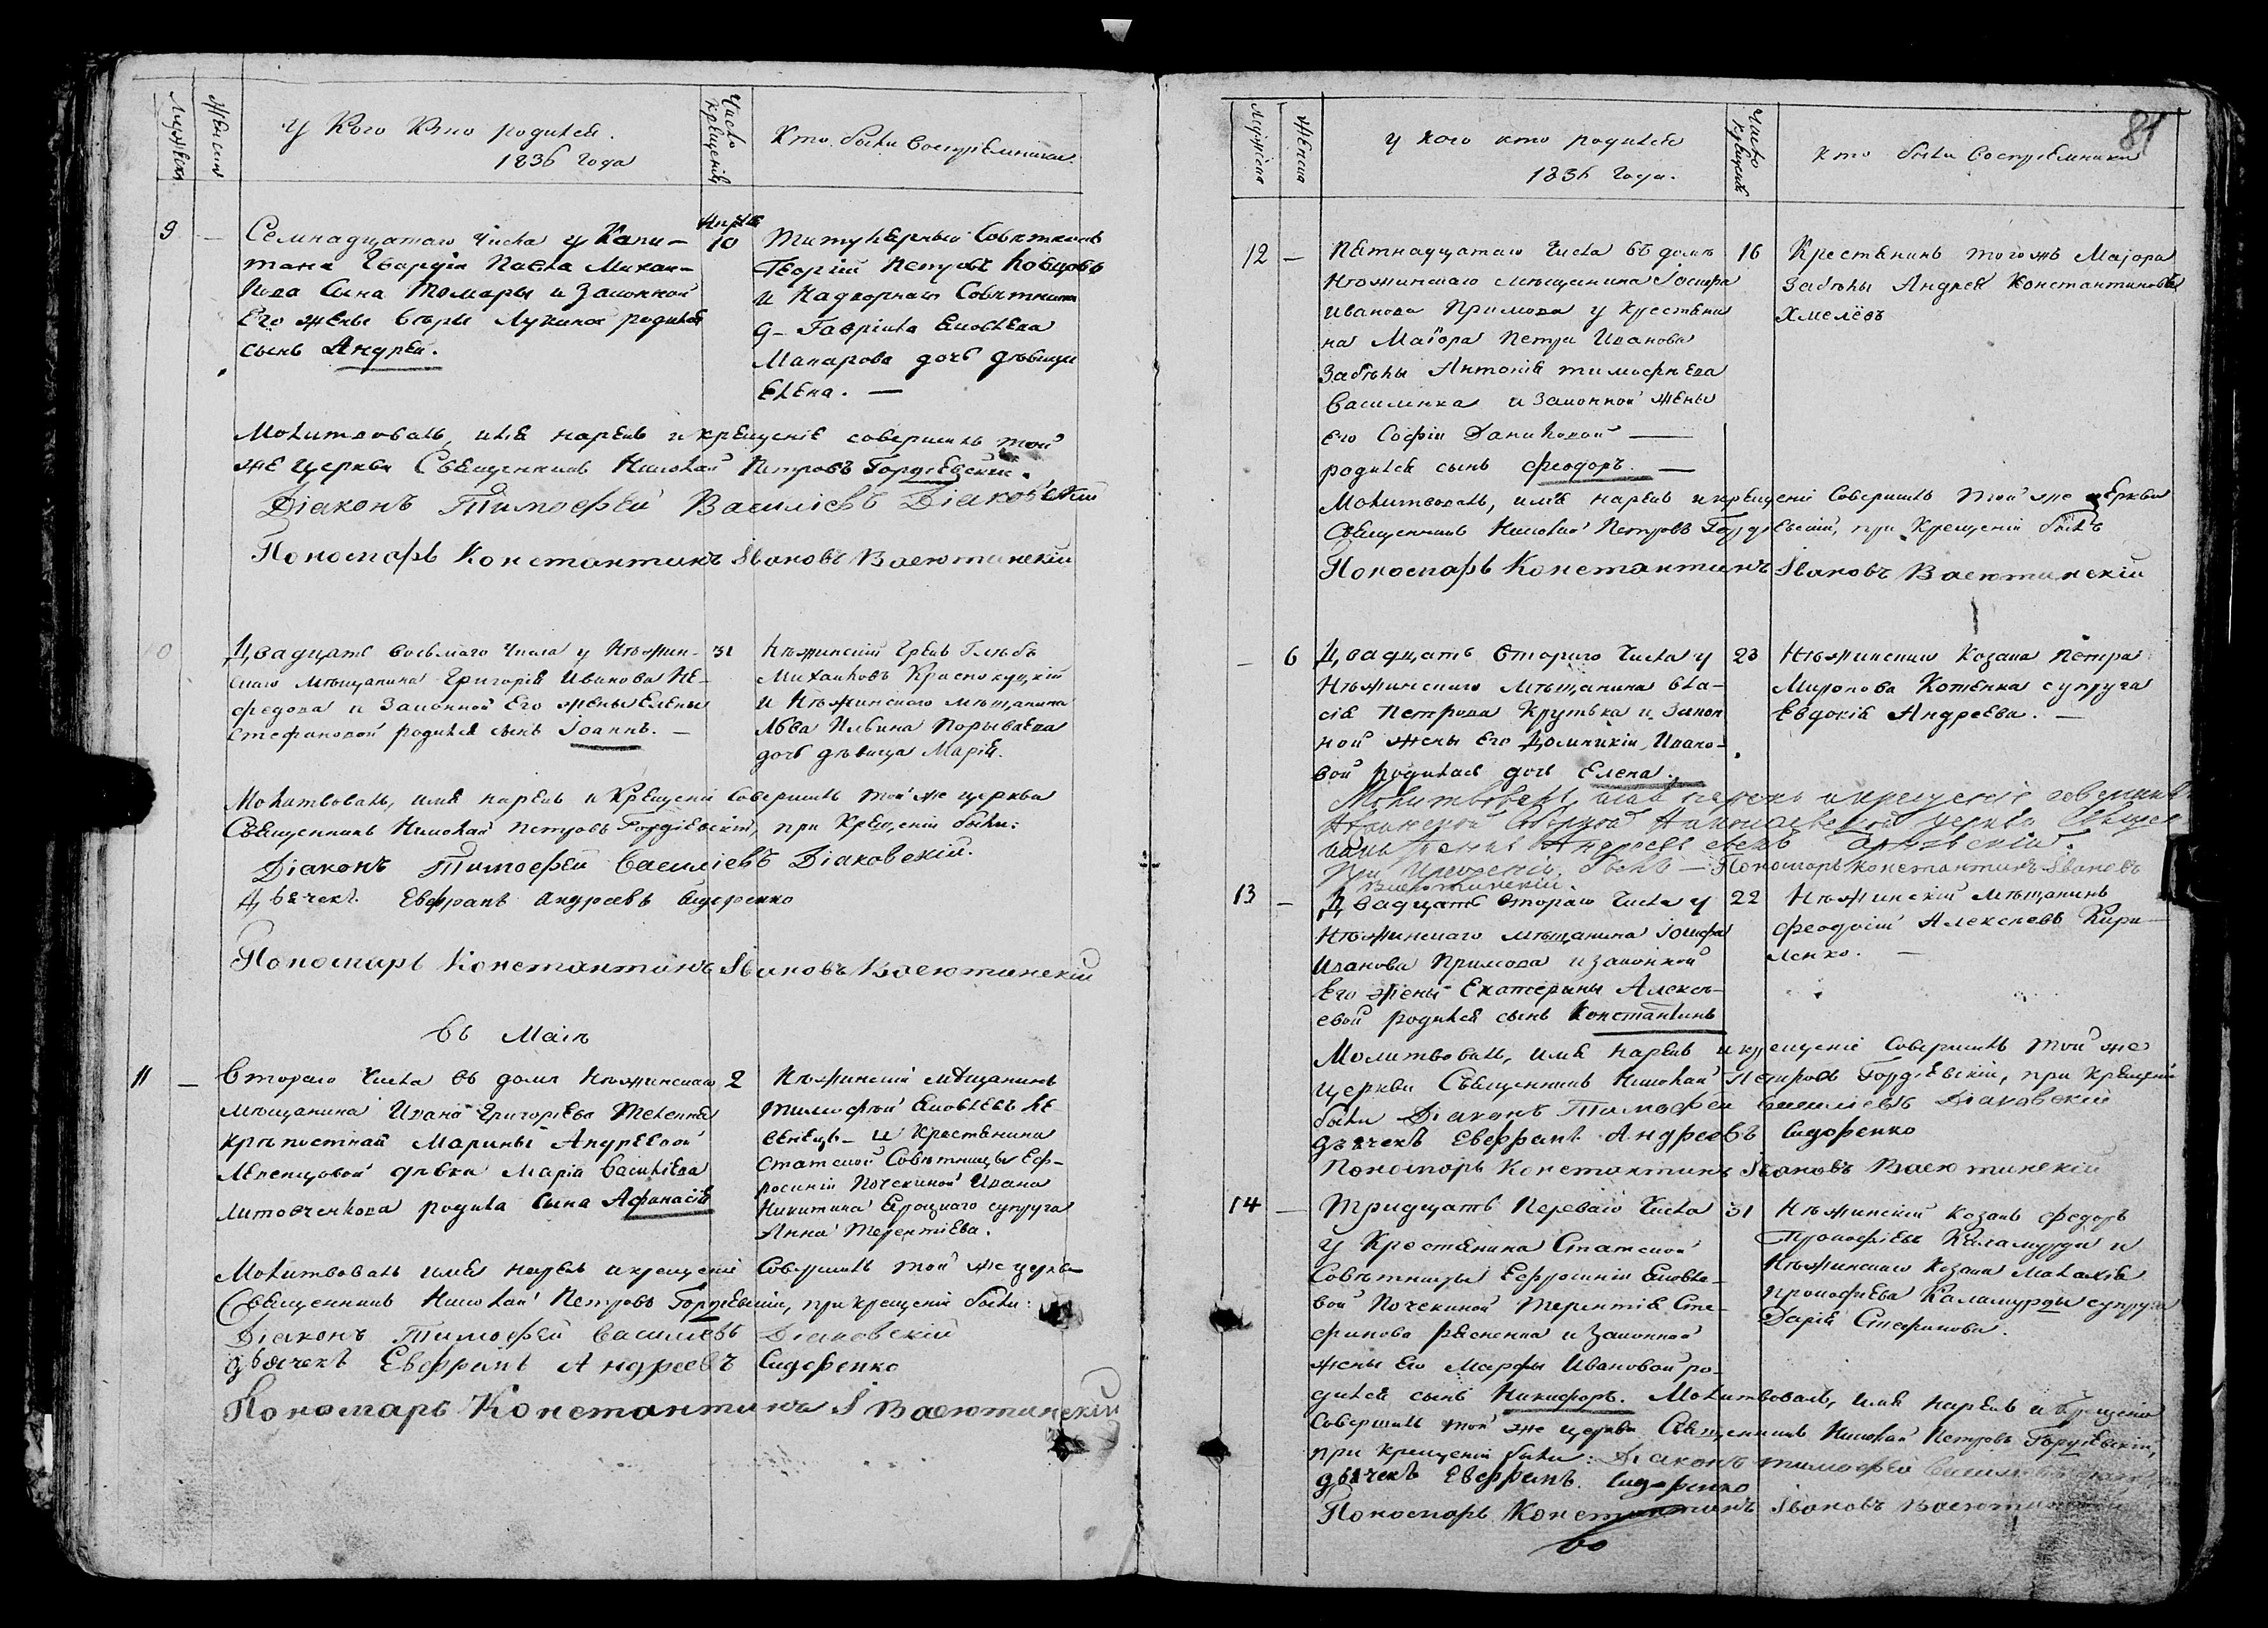 Мужеска
Женска
У Кого Кто родился.
1836 Года
Число крещенія
Кто были Воспріемники.
9 —
Семнадцатаго Числа у Капи-
тана Гвардіи Павла Михаи-
лова Сына Томары и Законной
Его жены Веры Лукиной родился
сынъ Андрей.
Апрля
10
Титулярный Совѣтникъ
Георгій Петровъ
и Надворнаго Совѣтника
Гавріила Яковлева
Макарова дочь дѣвица
Елена. —
Молитвовалъ, имя нарекъ и крещеніе совершилъ той
же церкви Священникъ Николай Петровъ Гордіевскій.
Діаконъ Тимофей Василіевъ Діаковскій
Пономарь Константинъ Івановъ Васютинскій
0
Двадцать восьмаго Числа у Нѣжин-
скаго мѣщанина Григорія Иванова Не-
федова и Законной Его жены Елены
Стефановой родился сынъ Іоаннъ. —
31
Нѣжинскій Грекъ Глѣбъ
Михаиловъ Краснокуцкій
и Нѣжинскаго мѣщанина
Льва Ильина Порываева
дочь дѣвица Марія.
Молитвовалъ, имя нарекъ и Крещеніе Совершилъ той же церкви
Священникъ Николай Петровъ Гордіевскій, при Крещеніи были:
Діаконъ Тимофей Василіевъ Діаковскій.
Дьячекъ Евфрапъ Андреевъ Сидоренко
Пономарь Константинъ Івановъ Васютинскій
Въ Маіѣ
11 —
Втораго Числа въ домѣ Нѣжинскаго
мѣщанина Ивана Григоріева
крѣпостной Марины Андреевой
дѣвка Марія Василіева
Литовченкова родила Сына Афанасія
2
Нѣжинскій мѣщанинъ
Тимофей Яковлевъ Ле-
венецъ — и Крестянина
Статской Совѣтницы Еф-
росиніи Почекиной Ивана
Никитина супруга
Анна Терентіева.
Молитвовалъ имя нарекъ и крещеніе Совершилъ той же церкви
Священникъ Николай Петровъ Гордіевскій, при крещеніи были:
Діаконъ Тимофей Василіевъ Діаковскій
дьячекъ Евфрапъ Андреевъ Сидоренко
Пономарь Константинъ І Васютинскій
81
Мужеска
Женска
у кого кто родился
1836 Года.
Число крещенія
кто были Воспріемники
12 —
Пятнадцатаго Числа въ домѣ
Нѣжинскаго мѣщанина Іосифа
Иванова Примова у крестяни
на Маіора Петра Иванова
Забѣлы Антонія Тимофѣева
Василенка и Законной жены
Его Софіи Даниловой —
родился сынъ Феодоръ. —
16
Крестянинъ тогожъ Маіора
Забѣлы Андрей Константиновъ
Хмелёвъ
Молитвовалъ, имя нарекъ и крещеніе Совершилъ той же церкви
Священникъ Николай Петровъ Гордіевскій, при Крещеніи былъ
Пономарь Константинъ Івановъ Васютинскій
— 6
Двадцать Втораго Числа у
Нѣжинскаго мѣщанина Вла-
сія Петрова Крутька и Закон
ной жены Его Домникіи Ивано-
вой родилась дочь Елена.
23
Нѣжинскаго Козака Петра
Миронова Котенка супруга
Евдокія Андреева. —
Молитвовалъ, имя нарекъ и крещеніе совершилъ
Нѣжинской Соборной Николаевской церкви Священ-
никъ
При крещеніи былъ — Пономарь Константинъ Івановъ
Васютинскій.
13 —
Двадцать Втораго Числа у
Нѣжинскаго мѣщанина Іосифа
Иванова Примова и законной
Его жены Екатерины Алексѣ-
евой родился сынъ Константинъ
22
Нѣжинскій мѣщанинъ
Феодосій Алексѣевъ Кири-
ленко. —
Молитвовалъ, имя нарекъ и крещеніе Совершилъ той же
церкви Священникъ Николай Петровъ Гордіевскій, при Крещеніи
были Діаконъ Тимофей Василіевъ Діаковскій
дьячекъ Евфрапъ Андреевъ Сидоренко
Пономарь Константинъ Івановъ Васютинскій
14 —
Тридцать Перваго Числа
у Крестянина Статской
Совѣтницы Ефросиніи Яковле-
вой Почекиной Терентія Сте-
фанова и Законной
жены Его Марфы Ивановой ро-
дился сынъ Никифоръ. Молитвовалъ, имя нарекъ и крещеніе
31
Нѣжинскій Козакъ Федоръ
Прокофіевъ Каламурда и
Нѣжинскаго Козака Малахія
Прокофіева Каламурды супруга
Дарія Стефанова.
Совершилъ той же церкви Священникъ Николай Петровъ Гордіевскій,
при крещеніи были: Діаконъ Тимофей Василіевъ
дьячекъ Евфрапъ Сидоренко
Пономарь Константинъ Івановъ Васютинскій